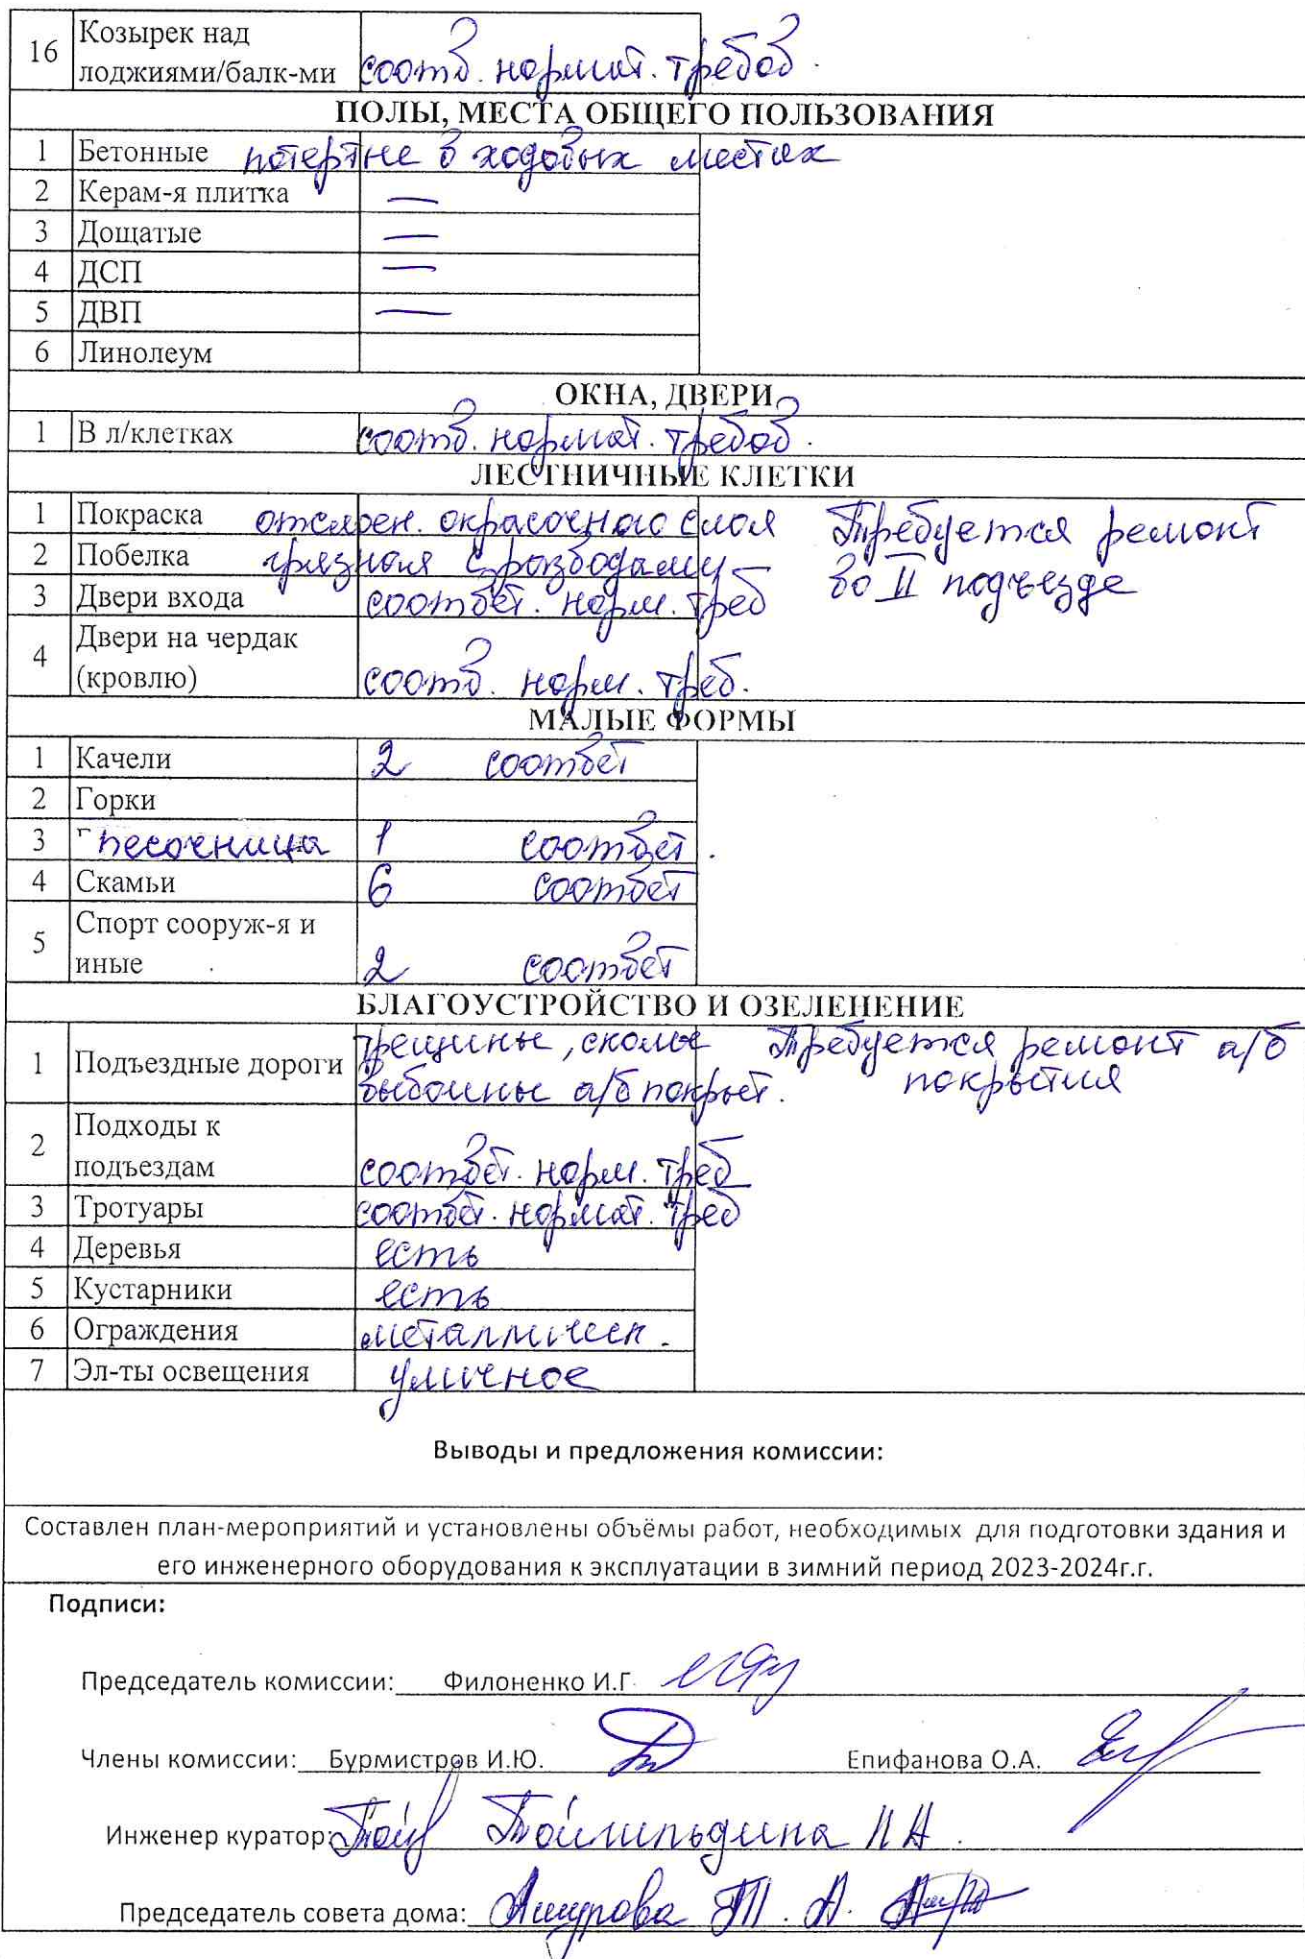 16 Козырек над
лоджиями/балк-ми соотв. нормат. требов.
ПОЛЫ, МЕСТА ОБЩЕГО ПОЛЬЗОВАНИЯ
1 Бетонные потертые в ходовых местах
2 Керам-я плитка —
3 Дощатые —
4 ДСП —
5 ДВП —
6 Линолеум
ОКНА, ДВЕРИ
1 В л/клетках соотв. нормат. требов.
ЛЕСТНИЧНЫЕ КЛЕТКИ
1 Покраска отслоен. окрасочного слоя Требуется ремонт
2 Побелка грязная с разводами во II подъезде
3 Двери входа соответ. норм. треб
4 Двери на чердак
(кровлю) соотв. норм. треб.
МАЛЫЕ ФОРМЫ
1 Качели 2 соответ
2 Горки
3 песочница 1 соответ.
4 Скамьи 6 соответ
5 Спорт сооруж-я и
иные 2 соответ
БЛАГОУСТРОЙСТВО И ОЗЕЛЕНЕНИЕ
1 Подъездные дороги трещины, сколы Требуется ремонт а/б
выбоины а/б покрыт. покрытия
2 Подходы к
подъездам соответ. норм. треб
3 Тротуары соответ. нормат. треб
4 Деревья есть
5 Кустарники есть
6 Ограждения металлическ.
7 Эл-ты освещения уличное
Выводы и предложения комиссии:
Составлен план-мероприятий и установлены объёмы работ, необходимых для подготовки здания и
его инженерного оборудования к эксплуатации в зимний период 2023-2024г.г.
Подписи:
Председатель комиссии: Филоненко И.Г.
Члены комиссии: Бурмистров И.Ю. Епифанова О.А.
Инженер куратор:
Председатель совета дома: Ашурова Т. А.